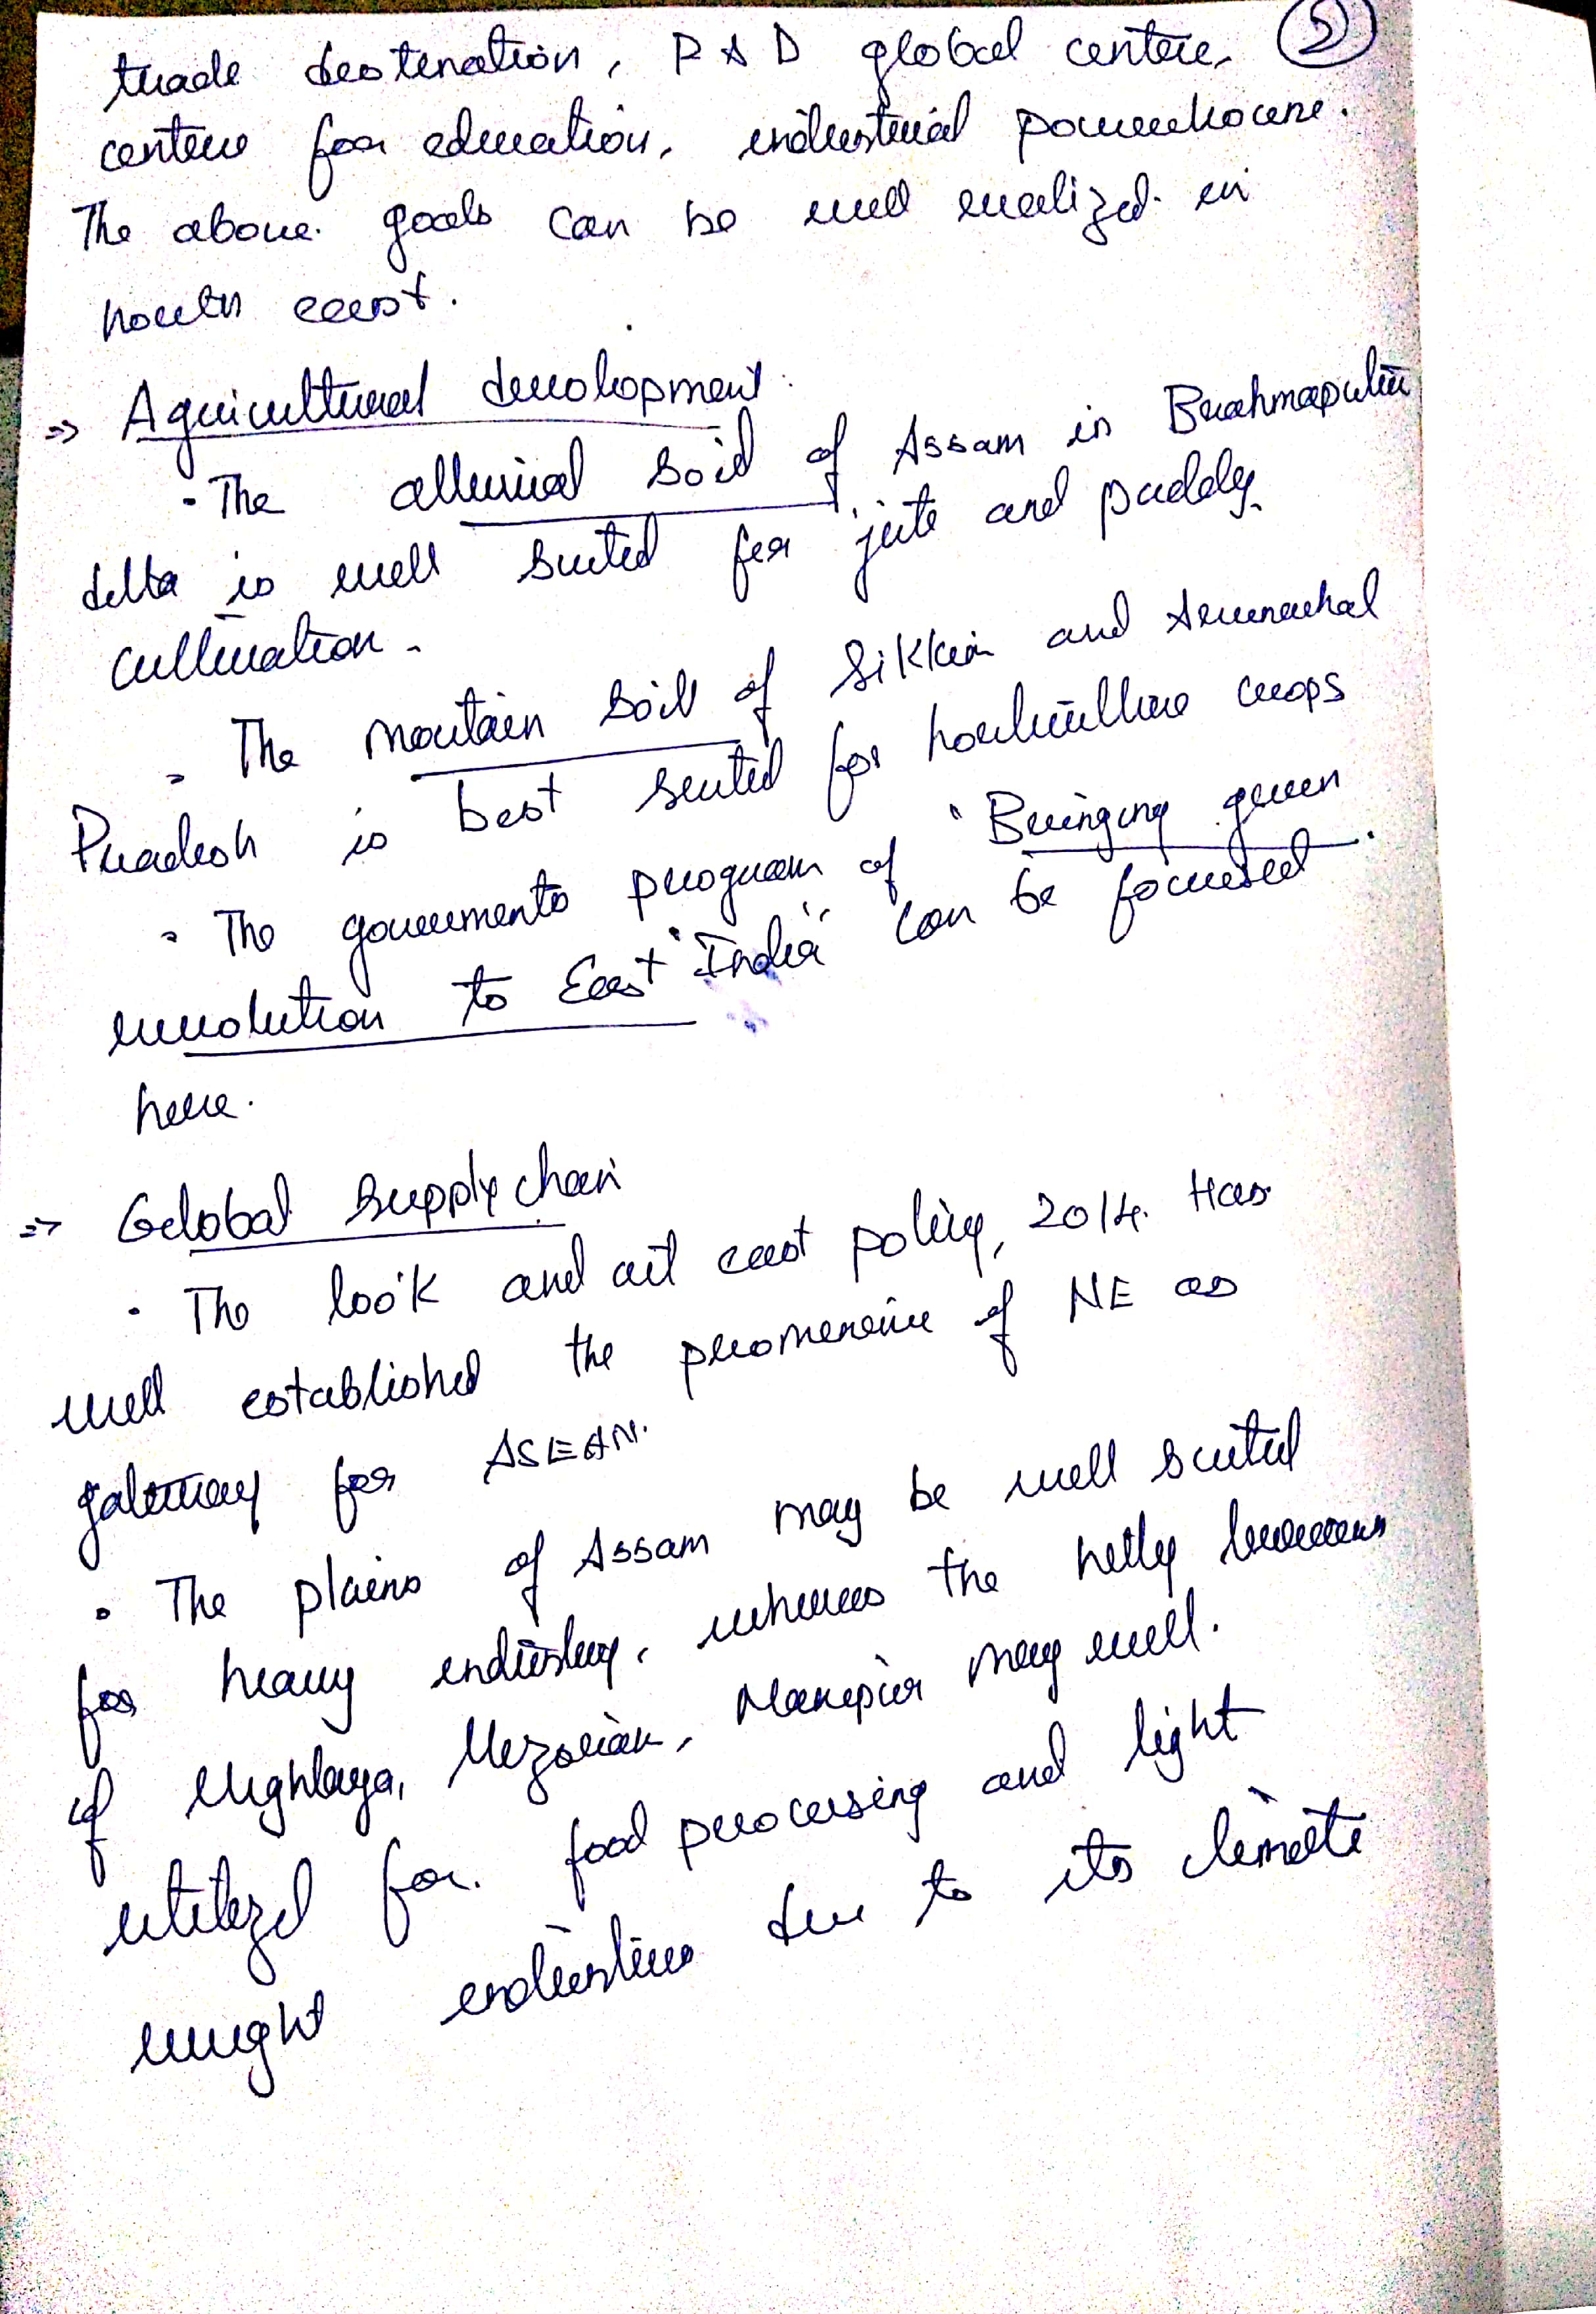 trade destination, R & D global centre, 5
centre for education, industrial powerhouse.
The above goals can be well realized in
north east.
=> Agricultural development.
- The alluvial soil of Assam in Brahmaputra
delta is well suited for jute and paddy
cultivation.
- The moutain soil of Sikkim and Arunachal
Pradesh is best suited for horticulture crops
- The governments program of "Bringing green
revolution to East India" can be focussed
here.
=> Gelobal supply chain
• The look and act east policy, 2014. Has
well established the prominence of NE as
gateway for ASEAN.
• The plains of Assam may be well suited
for heavy industry, whereas the hilly
of Meghlaya, Mizoram, Manipur may well.
utilized for. food processing and light
weight industries due to its climate